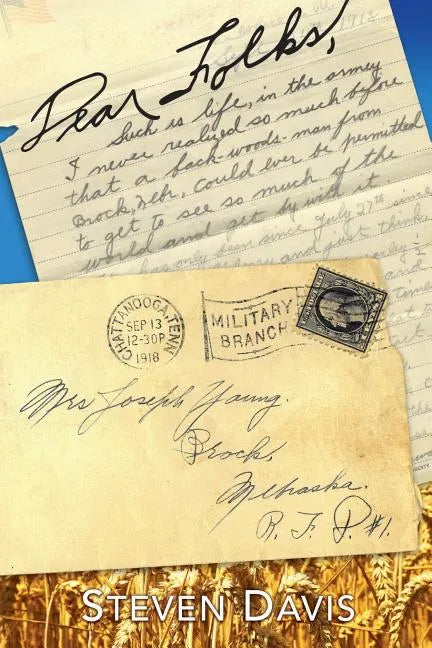 1918
Dear Folks,
Such is life, in the army
I never realized so much before
that a back-woods-man from
Brock, Nebr, could ever be permitted
to get to see so much of the
world and get by with it.
has only been since July 27th since
and just think,
and
time
CHATTANOOGA, TENN
SEP 13
12-30P
1918
MILITARY
BRANCH
Mrs Joseph Young.
Brock,
Nebraska.
R. F. D. #1.
STEVEN DAVIS